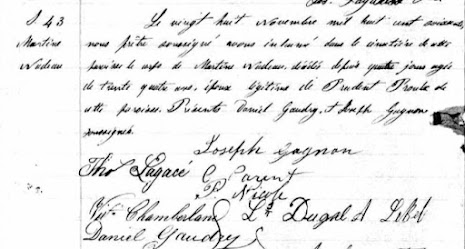 S. 43
Martine
Nadeau
Le vingt huit Novembre mil huit cent soixante
nous prêtre soussigné avons inhumé dans le cimetière de cette
paroisse le corps de Martine Nadeau, décédée depuis quatre jours agée
de trente quatre ans, épouse légitime de Prudent Proulx de
cette paroisse. Présents Daniel Gaudry, et Joseph Gagnon
soussignés.
Joseph Gagnon
Tho Lagacé C Parent
P Nicole
Chamberland Ls Dugal A Lebel
Daniel Gaudry